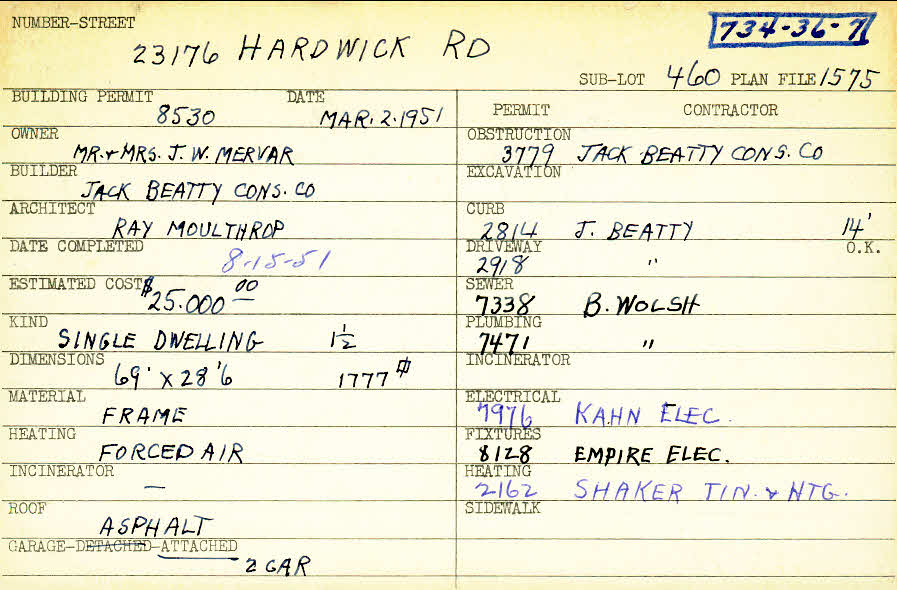 NUMBER-STREET
23176 HARDWICK RD
734-36-7
SUB-LOT 460 PLAN FILE 1575
BUILDING PERMIT DATE
8530 MAR. 2. 1951
OWNER
MR. & MRS. J. W. MERVAR
BUILDER
JACK BEATTY CONS. CO
ARCHITECT
RAY MOULTHROP
DATE COMPLETED
8-15-51
ESTIMATED COST $25.000 00
KIND
SINGLE DWELLING 1 1/2
DIMENSIONS
69' X 28'6 1777
MATERIAL
FRAME
HEATING
FORCED AIR
INCINERATOR
—
ROOF
ASPHALT
GARAGE-DETACHED-ATTACHED
2 CAR
PERMIT CONTRACTOR
OBSTRUCTION
3779 JACK BEATTY CONS. CO
EXCAVATION
CURB
2814 J. BEATTY 14'
DRIVEWAY O.K.
2918 "
SEWER
7338 B. WOLSH
PLUMBING
7471 "
INCINERATOR
ELECTRICAL
7976 KAHN ELEC.
FIXTURES
8128 EMPIRE ELEC.
HEATING
2162 SHAKER TIN. & HTG.
SIDEWALK